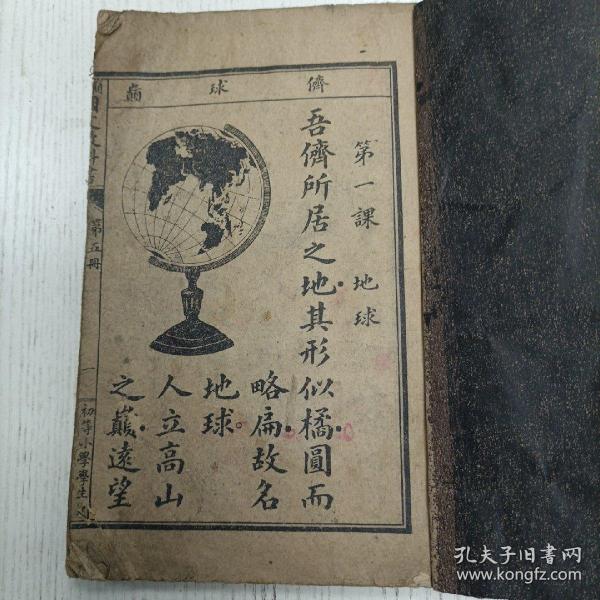 儕球巔
第一課 地球
吾儕所居之地其形似橘圓而
略扁故名
地球。
人立高山
之巔遠望
第五冊
一
初等小學學生
孔夫子旧书网
www.kongfz.com